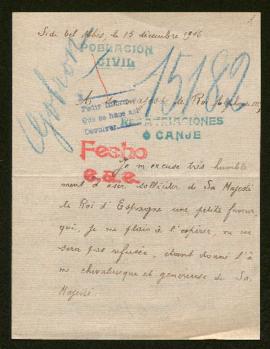 Sidi bel Abbès, le 15 décembre 1916
POBLACION
CIVIL
15182
Pedir informes
Que se hace
Devolver
REPATRIACIONES
O CANJE
Fecho
Je m'excuse très humble
ment d'oser solliciter de Sa Majesté
le Roi d'Espagne une petite faveur
qui, je me plais à l'espérer, ne me
sera pas refusée, étant donné l'â
me chevaleresque et généreuse de Sa
Majesté